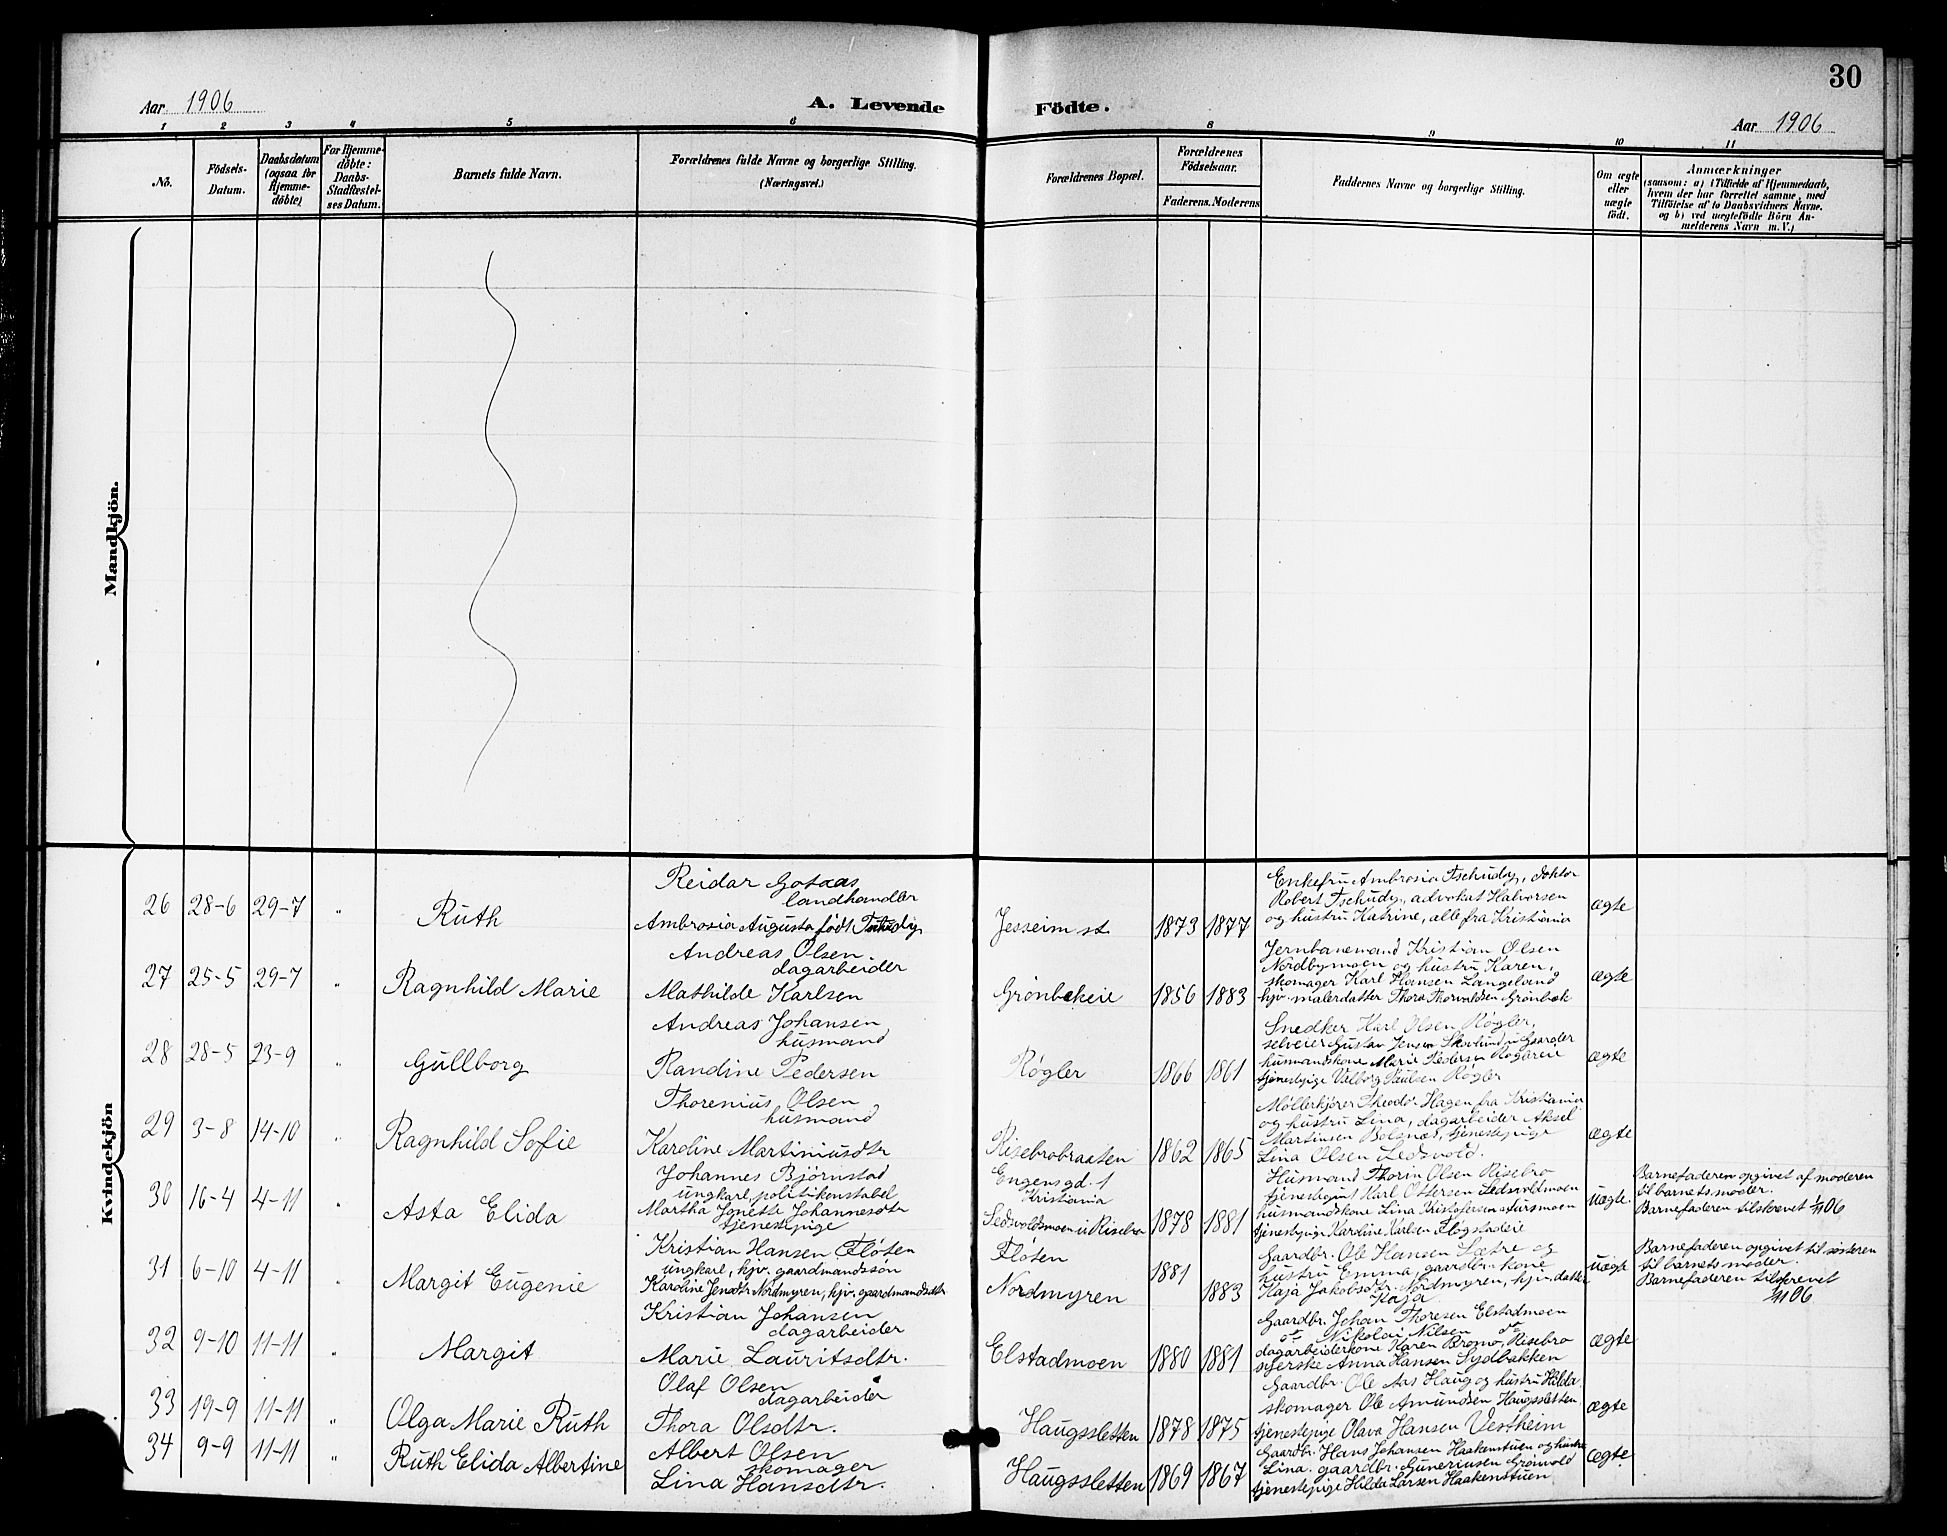 30
Aar 1906
A. Levende
Födte.
Aar 1906
1 2 3 4 5 6 8 9 10 11
No.
Födsels-
Datum.
Daabsdatum
(ogsaa for
Hjemme-
døbte)
For Hjemme-
døbte:
Daabs-
Stadfæstel-
ses Datum.
Barnets fulde Navn.
Forældrenes fulde Navne og borgerlige Stilling.
(Næringsvei.)
Forældrenes Bopæl.
Forældrenes
Födselsaar.
Faderens. Moderens
Faddernes Navne og borgerlige Stilling.
Om ægte
eller
uægte
født.
Anmærkninger
(saasom: a) i Tilfælde af Hjemmedaab,
hvem der har forrettet samme, med
Tilföielse af to Daabsvidners Navne.
og b) ved uægtefödte Börn An-
melderens Navn m. V.)
Mandkjön.
Kvindekjön
26 28-6 29-7 " Ruth
Reidar Gotaas
landhandler
Ambrosia Augusta født Tschudy
Jesseim st. 1873 1877
Enkefru Ambrosia Tschudy, doktor
Robert Tschudy, advokat Halvorsen
og hustru Katrine, alle fra Kristiania
ægte
27 25-5 29-7 " Ragnhild Marie
Andreas Olsen
dagarbeider
Mathilde Karlsen
Grønbækeie 1856 1883
Jernbanemand Kristian Olsen
Nordbymoen og hustru Karen,
skomager Karl Hansen Langeland
hjv. malerdatter Thora Thorvaldsen Grønbæk
ægte
28 28-5 23-9 " Gullborg
Andreas Johansen
husmand
Randine Pedersen
Røgler 1866 1861
Snedker Karl Olsen Røgler,
selveier Gustav Jensen Skovlund u Gaarder
husmandskone Marie Pedersen
tjenestepige Valborg Paulsen Røgler
ægte
29 3-8 14-10 " Ragnhild Sofie
Thorenius Olsen
husmand
Karoline Martiniusdtr
Risebrobraaten 1862 1865
Møllerkjører Theodor Hagen fra Kristiania
og hustru Lina, dagarbeider Aksel
Martinsen Bolsnæs, tjenestepige
Lina Olsen Ledsvold.
ægte
30 16-4 4-11 " Asta Elida
Johannes Bjørnstad
ungkarl, politikonstabel
Martha Jonette Johannesdtr
tjenestepige
Engensgd. 1
Kristiania
Ledsvoldsmoen u Risebro 1878 1881
Husmand Thorin Olsen Risebro
tjenestegut Karl Ottersen Ledsvoldmoen
husmandskone Lina Kristofersen Aursmoen
tjenestepige Karoline Karlsen Fløgstadeie
uægte.
Barnefaderen opgivet af moderen
til barnets moder.
Barnefaderen tilskrevet 1/1106
31 6-10 4-11 " Margit Eugenie
Kristian Hansen Fløten
ungkarl, hjv. gaardmandssøn
Karoline Jensdtr Nordmyren, hjv. gaardmandsdtr
Fløten
Nordmyren 1881 1883
Gaardbr. Ole Hansen Sætre og
hustru Emma, gaardbr. kone
Kaja Jakobsdtr. Nordmyren, hjv. datter
Kaja
uægte
Barnefaderen opgivet til søsteren
til barnets moder.
Barnefaderen tilskrevet
1/1106
32 9-10 11-11 " Margit
Kristian Johansen
dagarbeider
Marie Lauritsdtr.
Elstadmoen 1880 1881
Gaardbr. Johan Thoresen Elstadmoen
do Nikolai Nilsen do
dagarbeiderkone Karen Bergmo, Risebro
syerske Anna Hansen Sydbakken
ægte
33 19-9 11-11 " Olga Marie Ruth
Olaf Olsen
dagarbeider
Thora Olsdtr.
Haugssletten 1878 1875
Gaardbr. Ole Aas Haug og hustru Hilda
skomager Ole Amundsen Haugssletten,
tjenestepige Olava Hansen Vestheim
ægte
34 9-9 11-11 " Ruth Elida Albertine
Albert Olsen
skomager
Lina Hansdtr.
Haugssletten 1869 1867
Gaardbr. Hans Johansen Haakenstuen og hustru
Lina, gaardbr. Guneriusen Grønvold
tjenestepige Hilda Larsen Haakenstuen
ægte